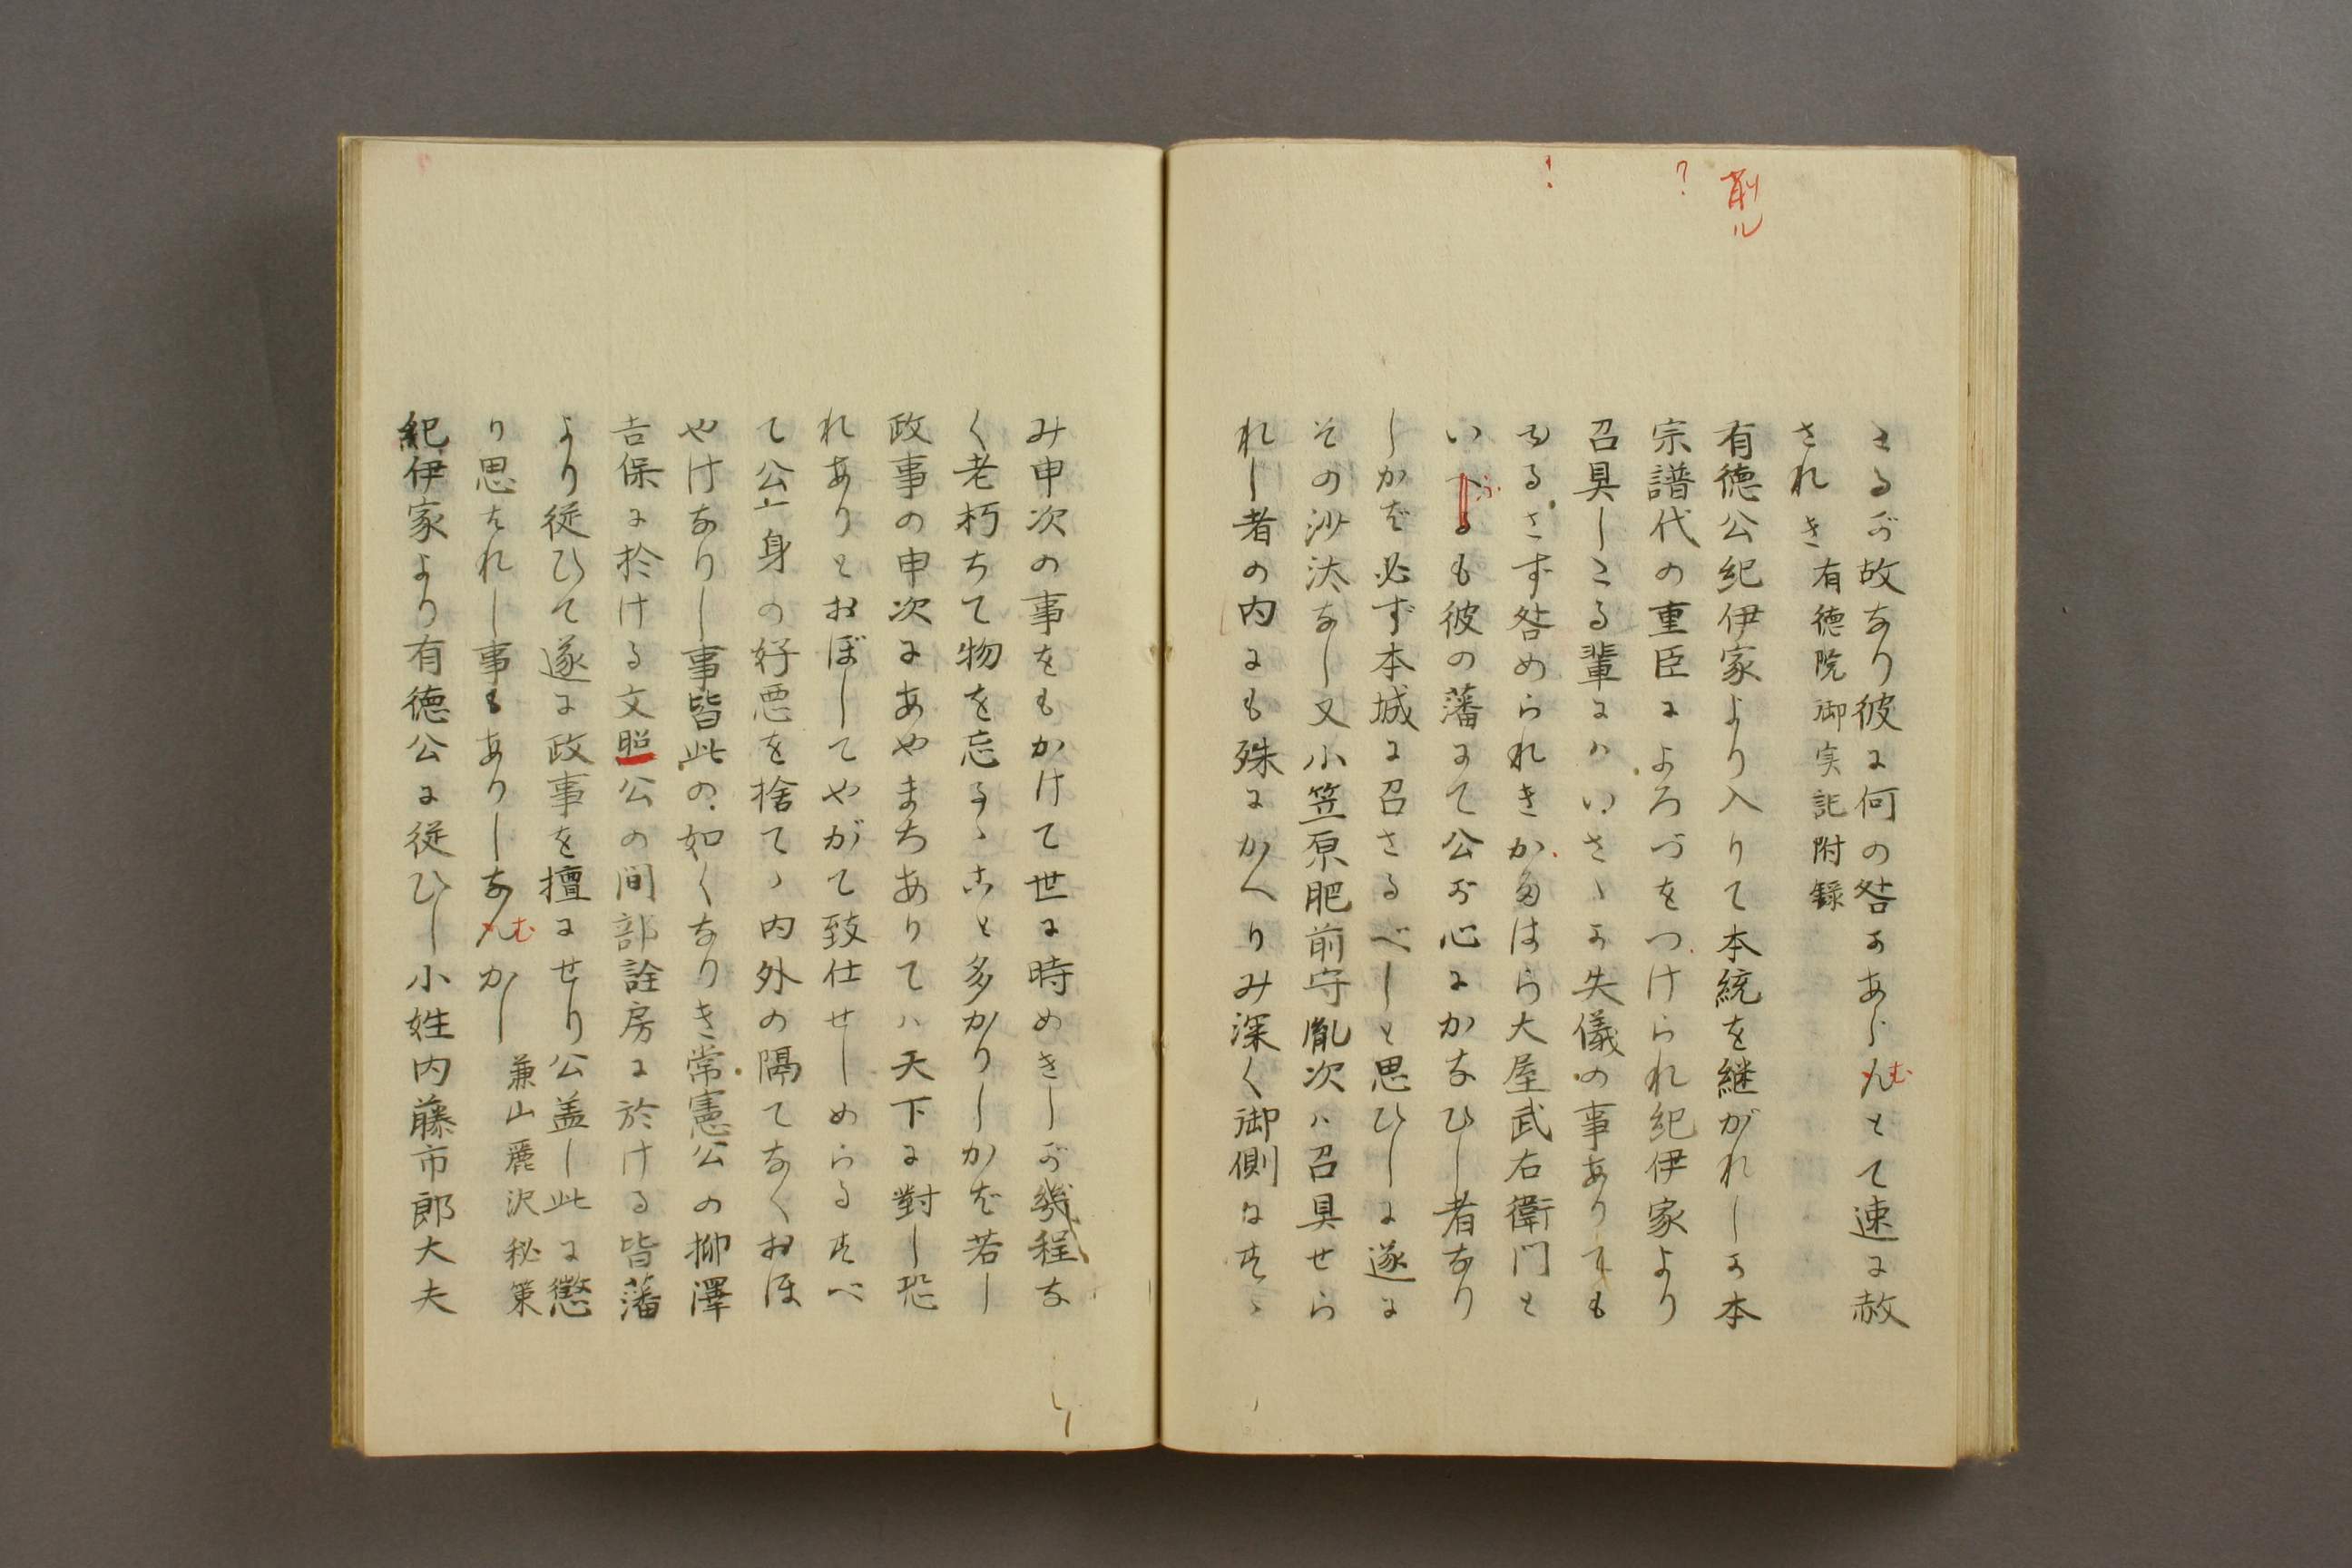 さるが故なり彼に何の咎かあらんむとて速に赦
されき有徳院御実記附録
削ル
有徳公紀伊家より入りて本統を継がれしか本
?
宗譜代の重臣によろづをつけられ紀伊家より
召具しこる輩にハいさゝか失儀の事ありても
!
ゆるさず咎められきかゞはら大屋武右衛門と
いへふるも彼の藩にて公が心にかなひし者なり
しかば必ず本城に召さるべしと思ひしに遂に
その沙汰なし又小笠原肥前守胤次ハ召具せら
れし者の内にも殊にかへりみ深く御側なすゝ
み申次の事をもかけて世に時めきしが幾程な
く老朽ちて物を忘るゝこと多かりしかば若し
政事の申次にあやまちありてハ天下に對し恐
れありとおぼしてやがて致仕せしめらるすべ
て公一身の好悪を捨てゝ内外の隔てなくおほ
やけなりし事皆此の如くなりき常憲公の柳澤
吉保に於ける文照公の間部詮房に於ける皆藩
より従ひて遂に政事を擅にせり公盖し此に懲
り思はれし事もありしなんむかし兼山麗沢秘策
紀伊家より有徳公に従ひし小姓内藤市郎大夫